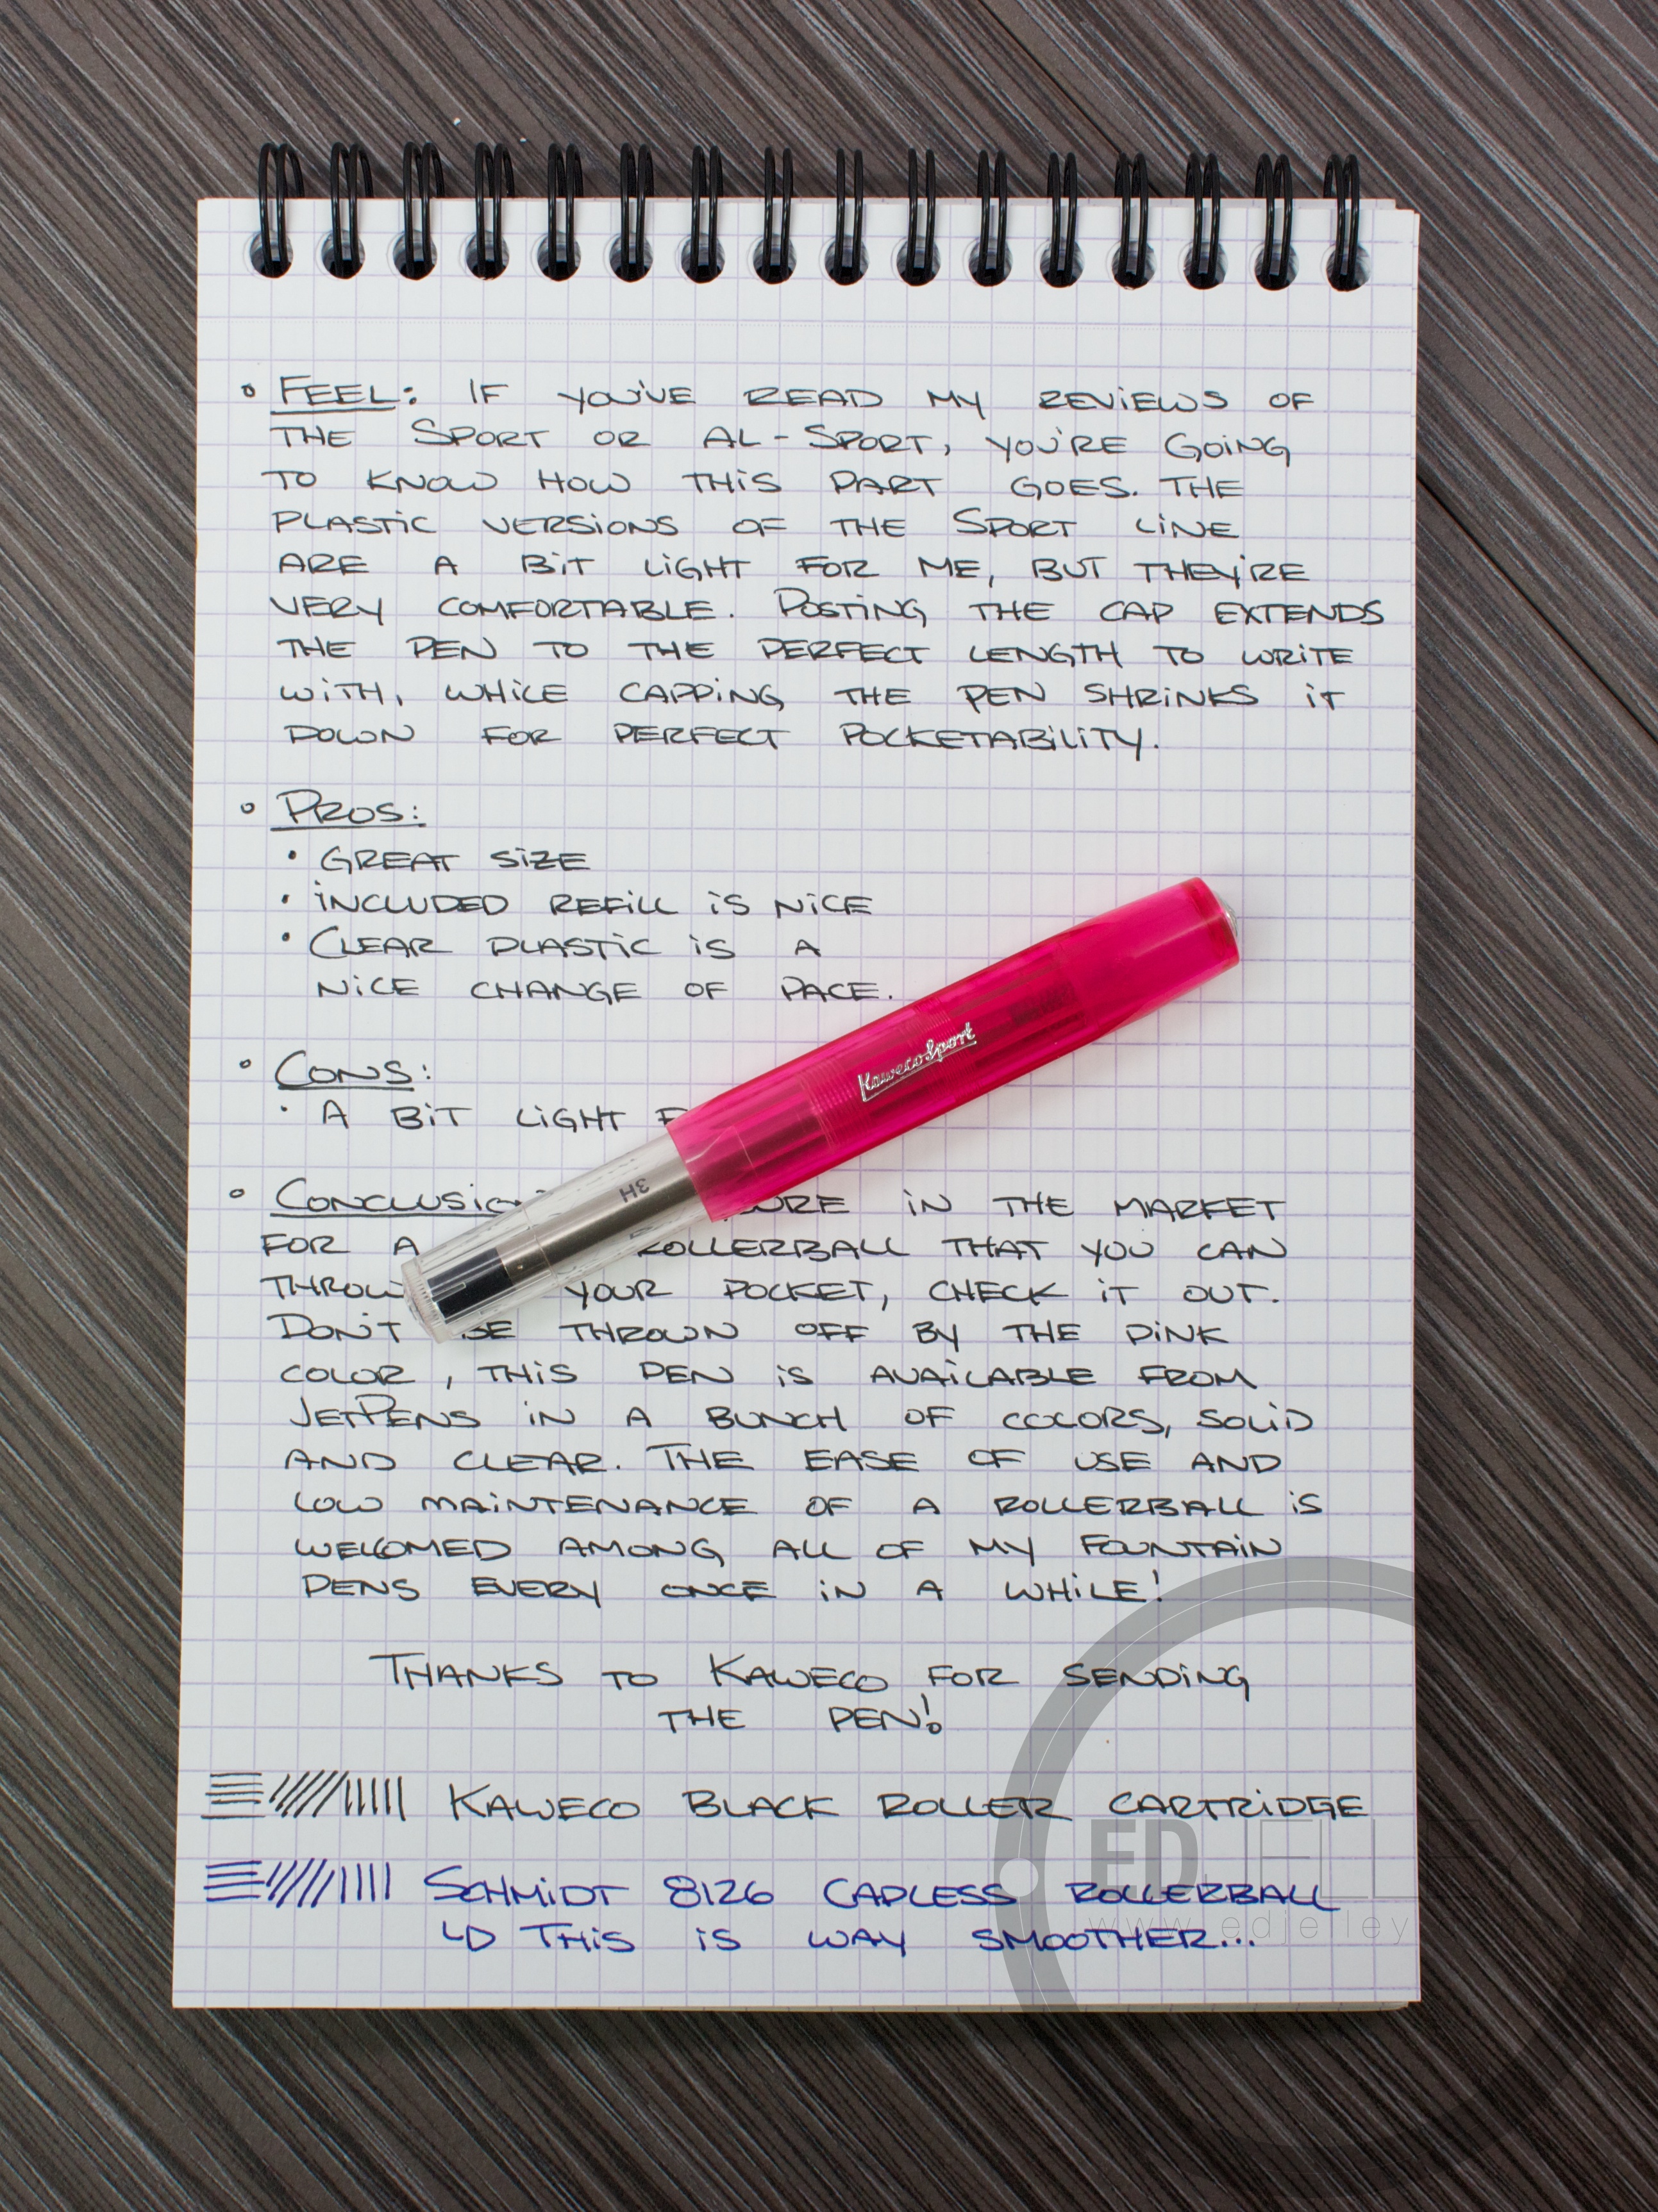 • FEEL: IF YOU'VE READ MY REVIEWS OF
THE SPORT OR AL-SPORT, YOU'RE GOING
TO KNOW HOW THIS PART GOES. THE
PLASTIC VERSIONS OF THE SPORT LINE
ARE A BIT LIGHT FOR ME, BUT THEY'RE
VERY COMFORTABLE. POSTING THE CAP EXTENDS
THE PEN TO THE PERFECT LENGTH TO WRITE
WITH, WHILE CAPPING THE PEN SHRINKS IT
DOWN FOR PERFECT POCKETABILITY.
• PROS:
• GREAT SIZE
• INCLUDED REFILL IS NICE
• CLEAR PLASTIC IS A
NICE CHANGE OF PACE.
• CONS:
• A BIT LIGHT
KawecoSport
3H
• CONCLUSION IN THE MARKET
FOR A ROLLERBALL THAT YOU CAN
THROW YOUR POCKET, CHECK IT OUT.
DON'T BE THROWN OFF BY THE PINK
COLOR, THIS PEN IS AVAILABLE FROM
JETPENS IN A BUNCH OF COLORS, SOLID
AND CLEAR. THE EASE OF USE AND
LOW MAINTENANCE OF A ROLLERBALL IS
WELCOMED AMONG ALL OF MY FOUNTAIN
PENS EVERY ONCE IN A WHILE!
THANKS TO KAWECO FOR SENDING
THE PEN!
KAWECO BLACK ROLLER CARTRIDGE
ED JELLEY
SCHMIDT 8126 CAPLESS ROLLERBALL
www.edjelley
↳ THIS IS WAY SMOOTHER...